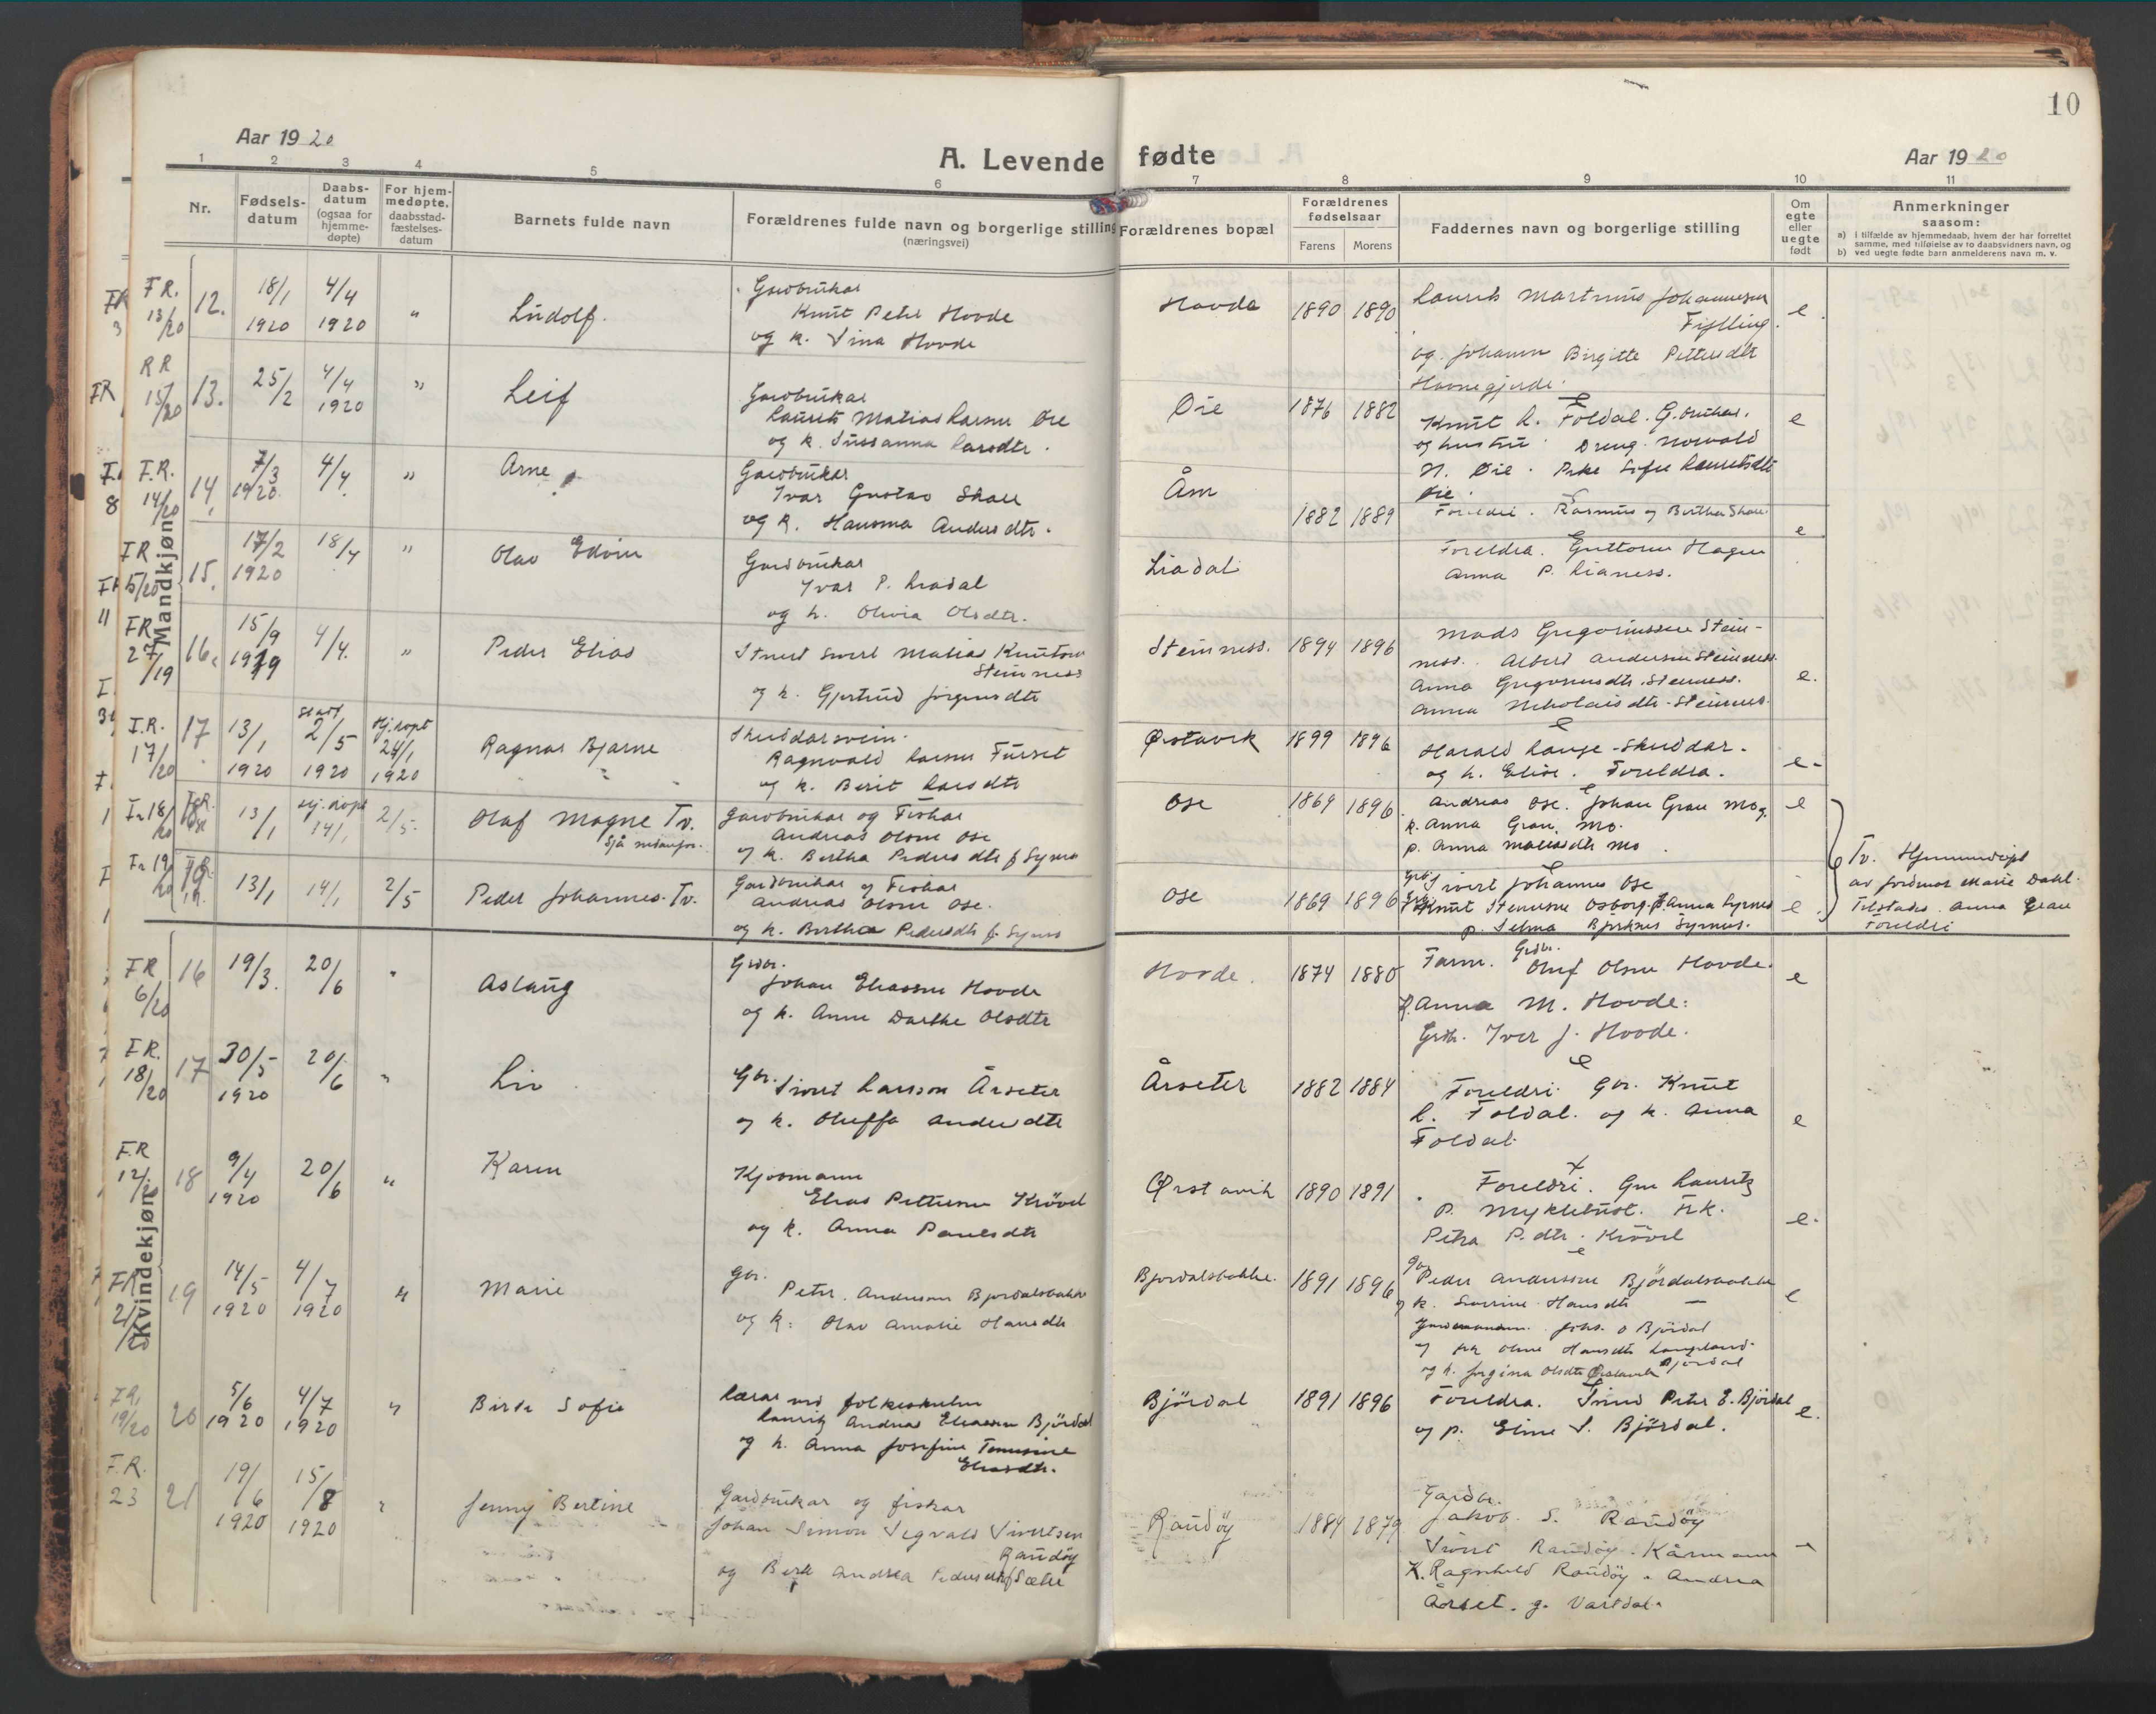 10
Aar 1920
A. Levende fødte
Aar 1920
1 2 3 4 5 6 7 8 9 10 11
Nr.
Fødsels-
datum
Daabs-
datum
(ogsaa for
hjemme-
døpte)
For hjem-
medøpte.
daabsstad-
fæstelses-
datum
Barnets fulde navn
Forældrenes fulde navn og borgerlige stilling
(næringsvei)
Forældrenes bopæl
Forældrenes
fødselsaar
Farens Morens
Faddernes navn og borgerlige stilling
Om
egte
eller
uegte
født
Anmerkninger
saasom:
a) i tilfælde av hjemmedaab, hvem der har forrettet
samme, med tilføielse av to daabsvidners navn, og
b) ved uegte fødte barn anmelderens navn m. v.
Mandkjøn
F.R. 13/20 12. 18/1 1920 4/4 1920 " Ludolf.
Gardbrukar
Knut Peter Hovde
og k. Sina Hovde
Hovde 1890 1890
Laurits Martinus Johannesen
og Johann Birgitte Pettersdtr
Havnegjerde.
e.
RR 15/20 13. 25/2 4/4 1920 " Leif
Gardbrukar
Laurits Matias Larsen Øie
og k. Sussanna Larsdtr.
Øie 1876 1882
Knut L. Foldal. G.brukar.
og hustru. Dreng. Norvald
N. Øie. Pike Sofie Lauritsdtr
Øie.
e
F.R. 14/20 14. 7/3 1920 4/4. " Arne
Gardbrukar
Ivar Gustav Skaar
og k. Hansina Andersdtr.
Åm 1882 1889
Foreldri. Rasmus og Berthe Skaar.
e
FR 5/20 15. 17/2 1920 18/4 " Olav Edvin
Gardbrukar
Ivar P. Liadal
og k. Olivia Olsdtr.
Liadal
Foreldra. Guttorm Hagen
Anna P. Lianess.
FR 27/19 16. 15/9 1919 4/4. " Peder Elias
Matias Knutsen
Steinness
og k. Gjertrud Jørgensdtr
Steinness. 1894 1896
Mads Gregoriussen Stein-
ness. Albert Andersen Steinness.
Anna Gregoriusdtr. Steinness.
Anna Nikolaisdtr. Steinnes.
e.
F.R. 17/20 17 13/1 1920 2/5 1920 Hj.døpt 24/1 1920 Ragnar Bjarne
Skreddarsvein.
Ragnvald Larsen Furset
og k. Berit Larsdtr
Ørstavik 1899 1896
Harald Lange - Skreddar.
og k. Elise. Foreldra.
e.
Fr 18/20 18 13/1 Hj.døpt 14/1 2/5. Olaf Magne Tv.
Sjå nedanfor.
Gardbrukar og Fiskar
Andreas Olsen Ose
og k. Bertha Pedersdtr f Syrnes
Ose 1869 1896.
Andreas Ose. Johan Grau Mo,
k. Anna Grau, Mo.
p. Anna Matiasdtr Mo.
e
Tv. Hjemmedøpt
av jordmor Marie Dahl.
Tilstades. Anna Grau
Foreldri
Fr 19/20 19 13/1 14/1 2/5 Peder Johannes. Tv.
Gardbrukar og Fiskar
Andreas Olsen Ose.
og k. Bertha Pedersdtr f. Syrnes
Ose 1869 1896
Sivert Johannes Ose
Knut Steinsne Osborg. p. Anna Syrnes
p. Selma Bjørknes Syrnes.
e
Kvindekjøn
FR 6/20 16 19/3. 20/6 " Aslaug
Grdbr.
Johan Eliassen Hovde
og k. Anne Dorthe Olsdtr
Hovde. 1874 1880
Farm. Grdbr. Oluf Olsen Hovde.
k. Anna M. Hovde.
Grdbr. Iver J. Hovde.
e
F.R. 18/20 17 30/5 1920 20/6 " Liv
Gbr. Sivert Larsson Årseter
og k. Oluffa Andersdtr
Årseter 1882 1884
Foreldri. Gbr. Knut
L. Foldal. og k. Anna
Foldal.
e
F.R 12/20 18 9/4 1920 20/6 " Karen
Kjøpmann
Elias Pettersen Krøvel
og k. Anna Paulsdtr
Ørstavik 1890 1891
Foreldri. Lauritz
P. Myklebust. Frk.
Petra P.dtr. Krøvel
e.
FR 21/20 19 14/5 1920 4/7 1920 " Marie
Gbr.
Peter Andersen Bjordalsbakke
og k. Olav Amalie Hansdtr
Bjordalsbakke. 1891 1896
Gbr Peder Anderssen Bjørdalsbakke
og k. Severine Hansdtr —
Joh. O Bjørdal
og frk Oline Hansdtr Langeland.
og k. Jørgina Olsdtr Ørstavik Bjørdal
e
F.R. 19/20 20 5/6 1920 4/7 1920 " Birte Sofie
Lærar ved folkeskulen
Lauritz Andreas Eliassen Bjørdal
og k. Anna Josefine Tomasine
Eliasdtr.
Bjørdal 1891 1896
Foreldra. Peter E. Bjørdal
og p. Eline S. Bjørdal.
e.
F.R. 23 21 19/6 1920 15/8 1920 " Jenny Bertine
Gardbrukar og fiskar
Johan Simon Segvald Sivertsen
Raudøy
og Berte Andrea Pedersdtr f Sæter
Raudøy 1884 1879
Gardbr.
Jakob. S. Raudøy
Sivert Raudøy. Kårmann
K. Ragnhild Raudøy. Andrea
Årset. g. Vartdal.